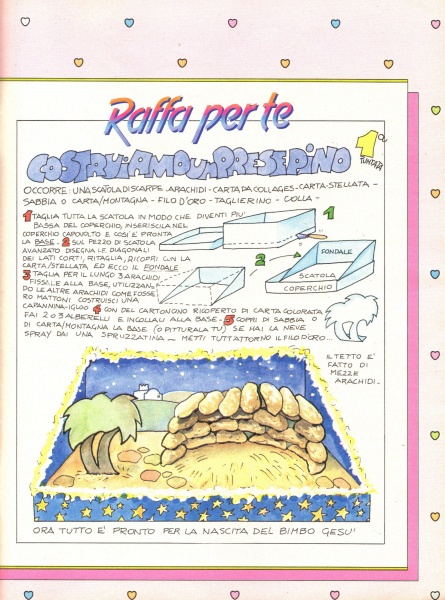 Raffa per te
COSTRUIAMO UN PRESEPINO
1a PUNTATA
OCCORRE: UNA SCATOLA DI SCARPE - ARACHIDI - CARTA DA COLLAGES - CARTA STELLATA -
SABBIA O CARTA/MONTAGNA - FILO D'ORO - TAGLIERINO - COLLA -
1 TAGLIA TUTTA LA SCATOLA IN MODO CHE DIVENTI PIU'
BASSA DEL COPERCHIO, INSERISCILA NEL
COPERCHIO CAPOVOLTO E COSI' E' PRONTA
LA BASE. 2 SUL PEZZO DI SCATOLA
AVANZATO DISEGNA LE DIAGONALI
DEI LATI CORTI, RITAGLIA, RICOPRI CON LA
CARTA/STELLATA ED ECCO IL FONDALE
3 TAGLIA PER IL LUNGO 3 ARACHIDI,
FISSALE ALLA BASE, UTILIZZAN
DO LE ALTRE ARACHIDI COME FOSSE
RO MATTONI COSTRUISCI UNA
CAPANNINA-IGLOO 4 CON DEL CARTONCINO RICOPERTO DI CARTA COLORATA
FAI 2 O 3 ALBERELLI E INCOLLALI ALLA BASE - 5 COPRI DI SABBIA O
DI CARTA/MONTAGNA LA BASE (O PITTURALA TU) SE HAI LA NEVE
SPRAY DAI UNA SPRUZZATINA - METTI TUTT'ATTORNO IL FILO D'ORO...
1
2
FONDALE
SCATOLA
COPERCHIO
IL TETTO E'
FATTO DI
MEZZE
ARACHIDI.
ORA TUTTO E' PRONTO PER LA NASCITA DEL BIMBO GESU'